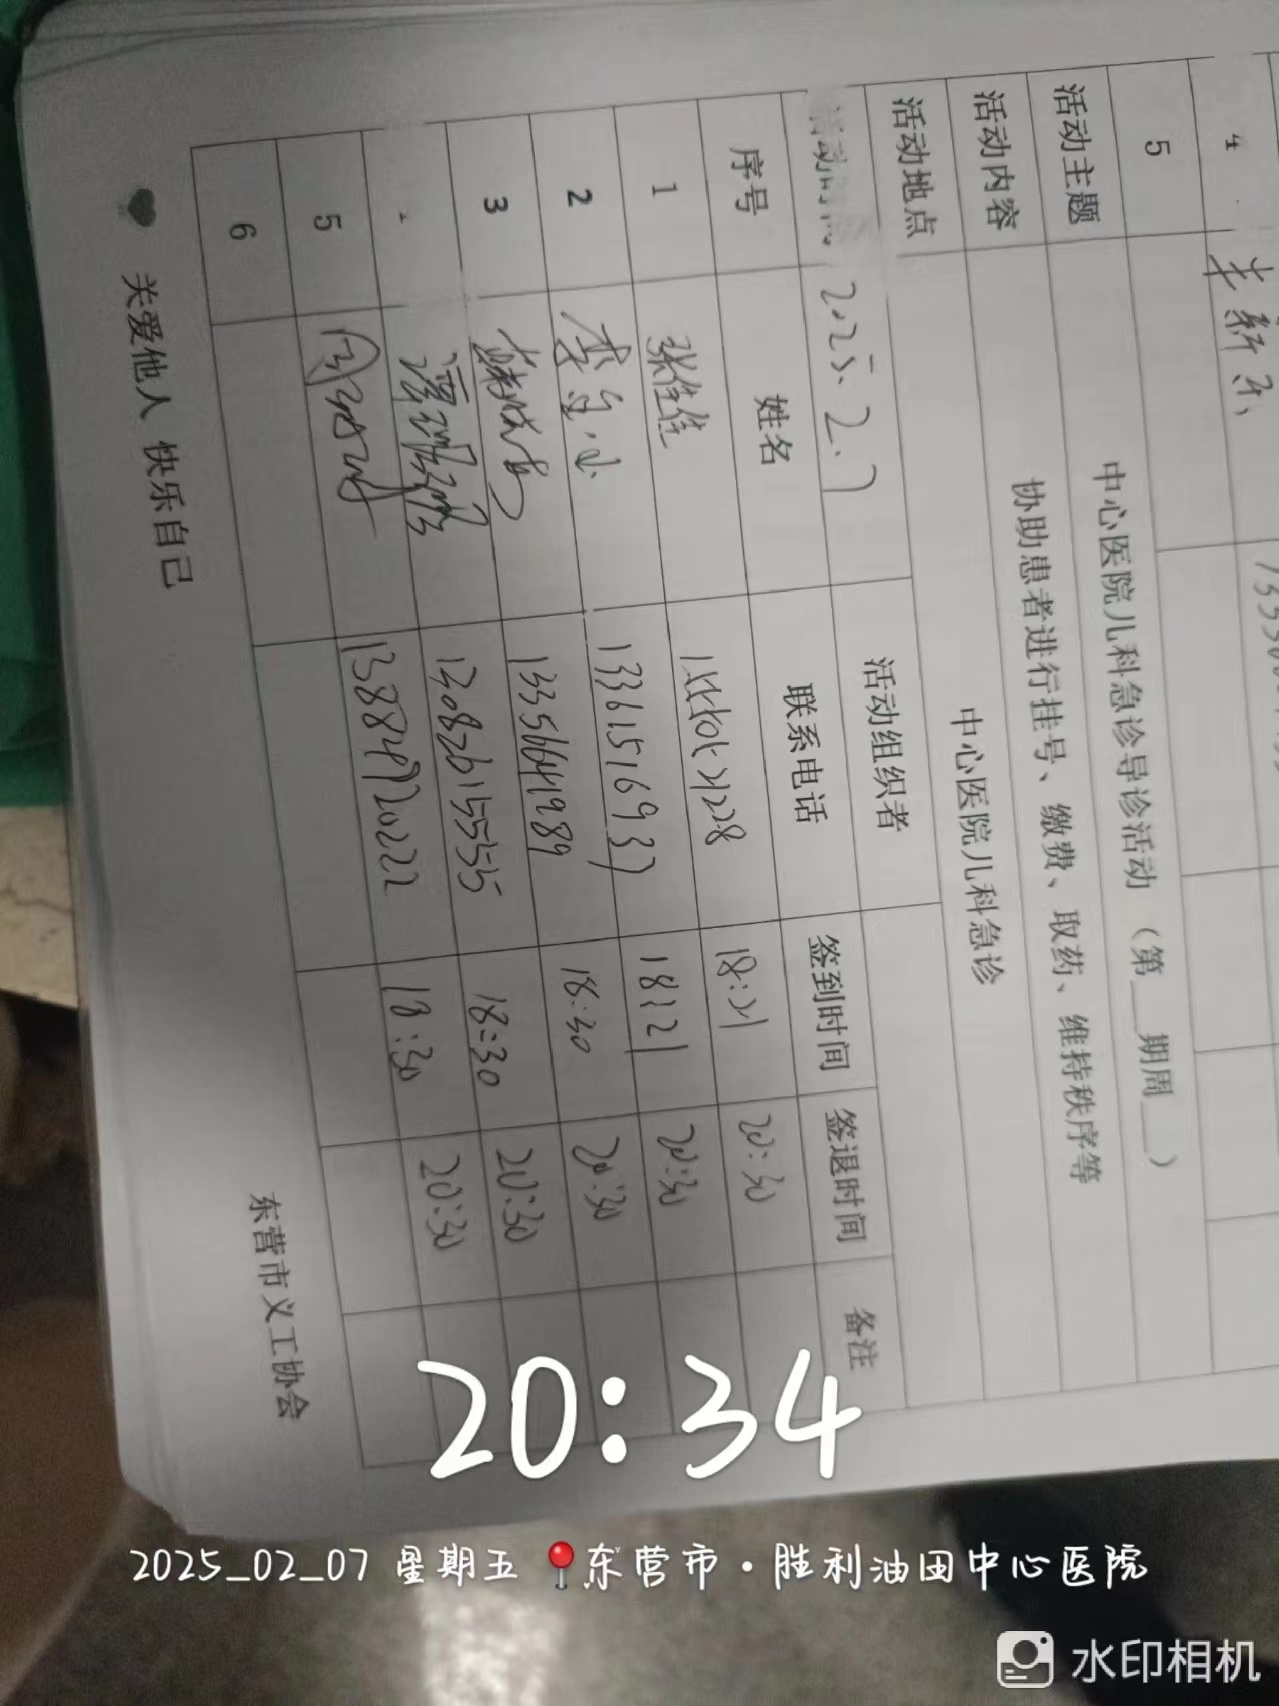 4
5
活动主题 中心医院儿科急诊导诊活动（第__期周__）
活动内容 协助患者进行挂号、缴费、取药、维持秩序等
活动地点 中心医院儿科急诊
活动时间 2025.2.7 活动组织者
序号 姓名 联系电话 签到时间 签退时间 备注
1 张佳佳 18:21 20:30
2 13361516937 18:21 20:30
3 13356641989 18:30 20:30
13082615555 18:30 20:30
5 13884972022 18:30 20:30
6
关爱他人 快乐自己
东营市义工协会
20:34
2025_02_07 星期五 东营市·胜利油田中心医院
水印相机